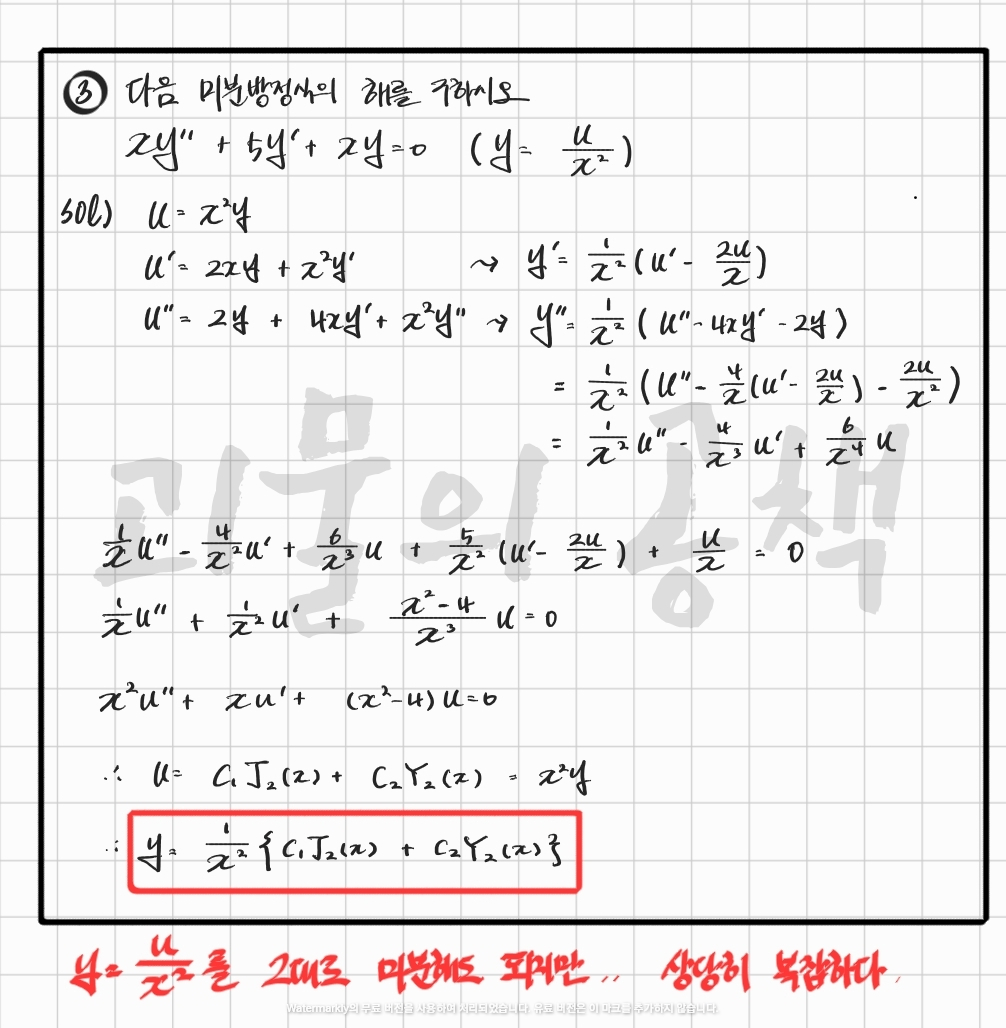 ③ 다음 미분방정식의 해를 구하시오
xy'' + 5y' + xy = 0 (y = u/x²)
sol) u = x²y
u' = 2xy + x²y' ⇝ y' = 1/x² (u' - 2u/x)
u'' = 2y + 4xy' + x²y'' ⇝ y'' = 1/x² (u'' - 4xy' - 2y)
= 1/x² (u'' - 4/x (u' - 2u/x) - 2u/x²)
= 1/x² u'' - 4/x³ u' + 6/x⁴ u
괴물의 공책
1/x u'' - 4/x² u' + 6/x³ u + 5/x² (u' - 2u/x) + u/x = 0
1/x u'' + 1/x² u' + (x²-4)/x³ u = 0
x²u'' + xu' + (x²-4)u = 0
∴ u = C₁J₂(x) + C₂Y₂(x) = x²y
∴ y = 1/x² {C₁J₂(x) + C₂Y₂(x)}
y = u/x² 를 그대로 미분해도 되지만.. 상당히 복잡하다.
Watermarkly의 무료 버전을 사용하여 처리되었습니다. 유료 버전은 이 마크를 추가하지 않습니다.